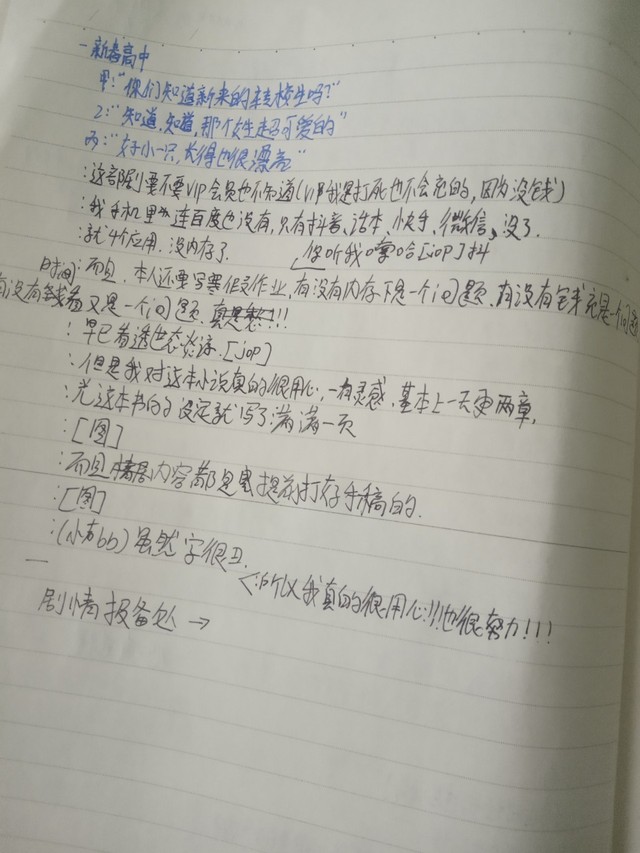 一新春高中
甲:“你们知道新来的转校生吗?”
乙:“知道,知道,那个女生超可爱的”
丙:“好小一只,长得也很漂亮”
:这部剧要不要VIP会员也不知道(VIP我是打死也不会充的,因为没钱)
:我手机里连百度也没有,只有抖音、话本、快手、微信,没了.
:就4个应用.没内存了.
你听我口哈[jop]抖
:而且.本人还要写作业,有没有内存下是一个问题.有没有钱充是一个问题
有没有时间看又是一个问题.真是愁!!!
:早已看透世态炎凉.[jop]
:但是我对这本小说真的很用心,一有灵感.基本上一天更两章.
:光这本书的设定就写了满满一页
:[图]
:而且情剧内容都是提前打好手稿的.
:[图]
:(小声bb)虽然字很丑.
<:所以我真的很用心!!!也很努力!!!
一
剧情报备处→